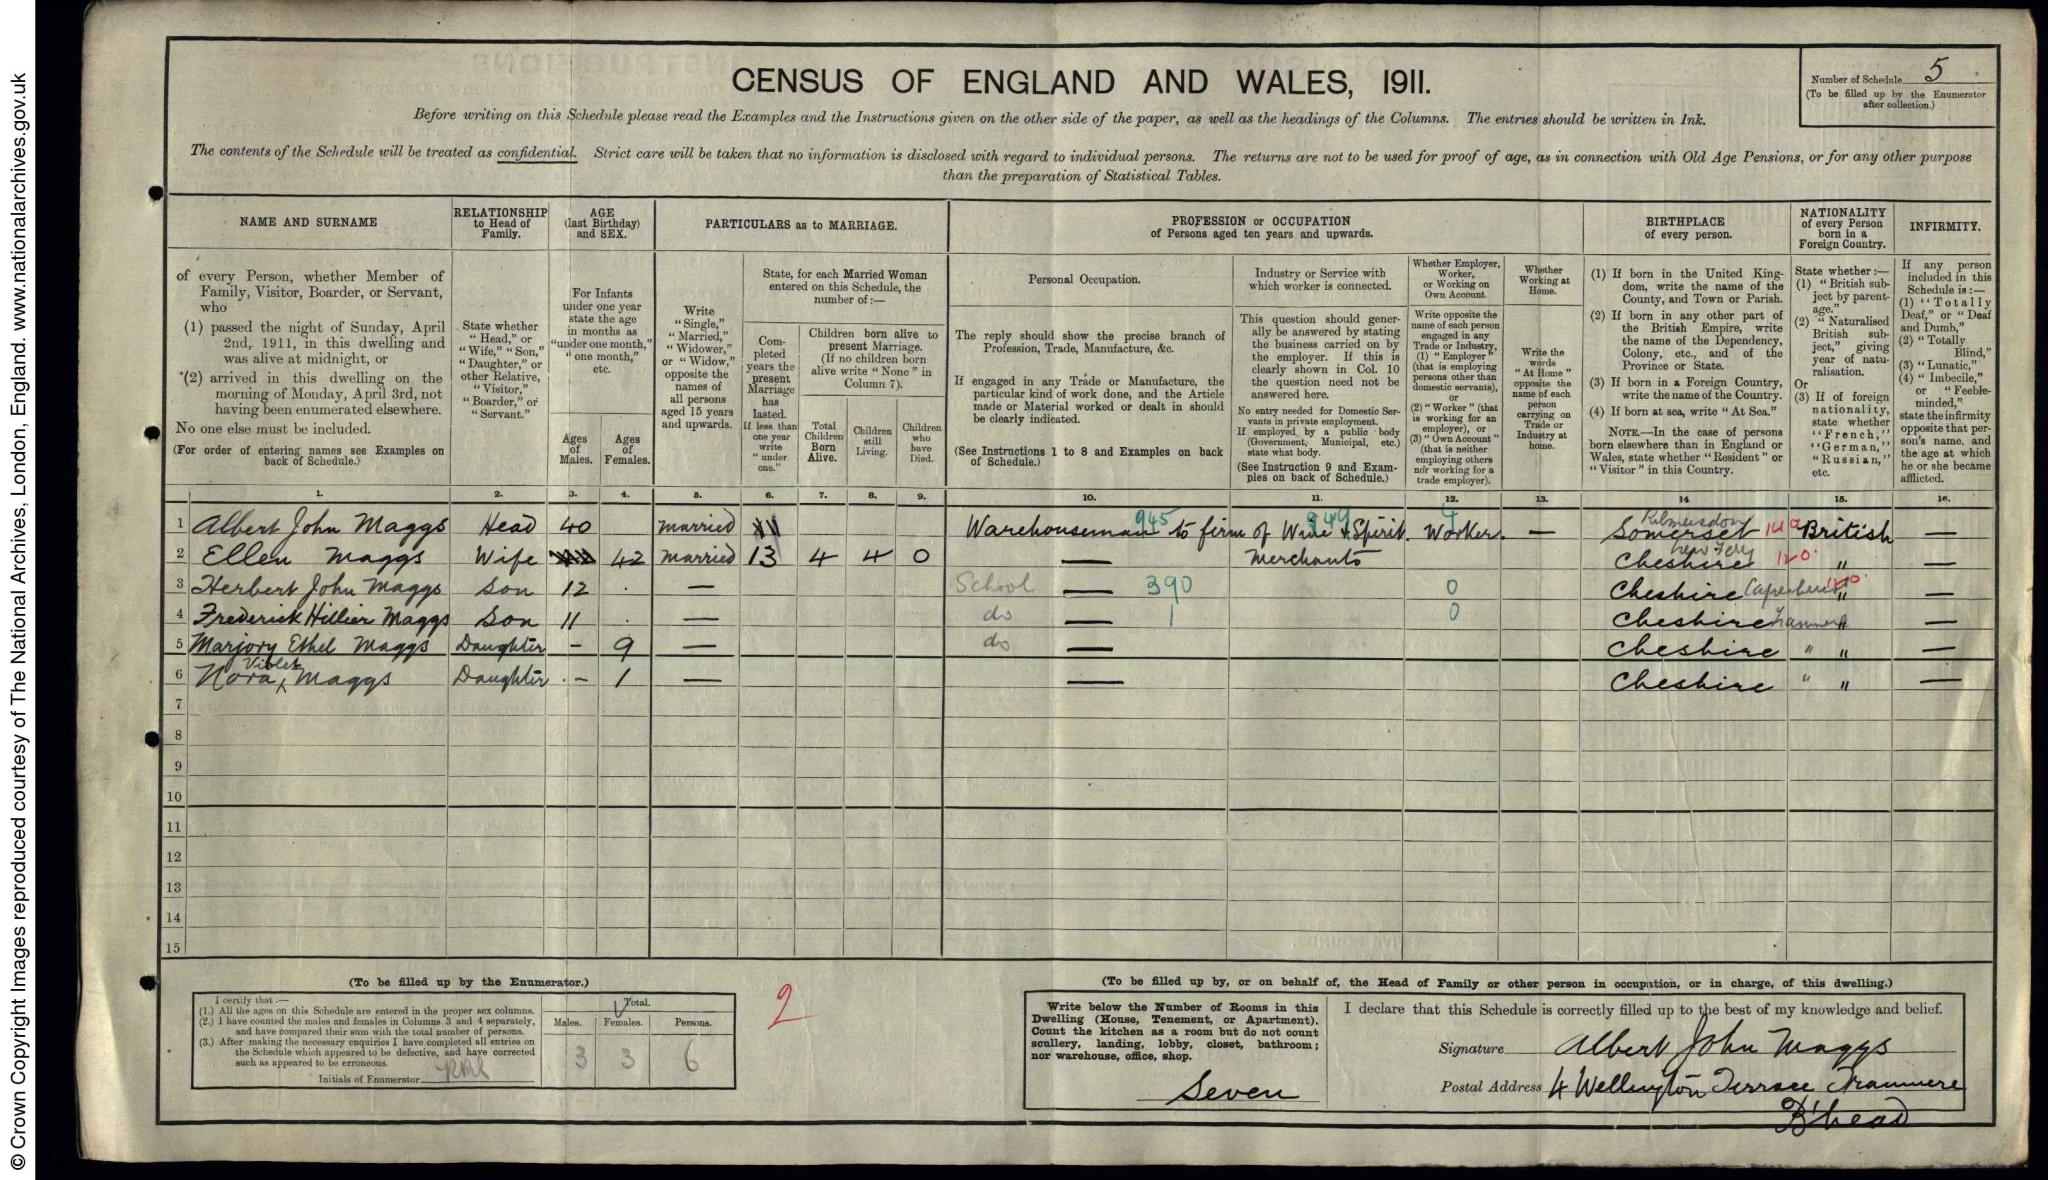 © Crown Copyright Images reproduced courtesy of The National Archives, London, England. www.nationalarchives.gov.uk
CENSUS OF ENGLAND AND WALES, 1911.
Number of Schedule 5
(To be filled up by the Enumerator
after collection.)
Before writing on this Schedule please read the Examples and the Instructions given on the other side of the paper, as well as the headings of the Columns. The entries should be written in Ink.
The contents of the Schedule will be treated as confidential. Strict care will be taken that no information is disclosed with regard to individual persons. The returns are not to be used for proof of age, as in connection with Old Age Pensions, or for any other purpose
than the preparation of Statistical Tables.
NAME AND SURNAME
of every Person, whether Member of
Family, Visitor, Boarder, or Servant,
who
(1) passed the night of Sunday, April
2nd, 1911, in this dwelling and
was alive at midnight, or
*(2) arrived in this dwelling on the
morning of Monday, April 3rd, not
having been enumerated elsewhere.
No one else must be included.
(For order of entering names see Examples on
back of Schedule.)
RELATIONSHIP
to Head of
Family.
State whether
"Head," or
"Wife," "Son,"
"Daughter," or
other Relative,
"Visitor,"
"Boarder," or
"Servant."
AGE
(last Birthday)
and SEX.
For Infants
under one year
state the age
in months as
"under one month,"
"one month,"
etc.
Ages
of
Males.
Ages
of
Females.
PARTICULARS as to MARRIAGE.
Write
"Single,"
"Married,"
"Widower,"
or "Widow,"
opposite the
names of
all persons
aged 15 years
and upwards.
State, for each Married Woman
entered on this Schedule, the
number of:—
Com-
pleted
years the
present
Marriage
has
lasted.
If less than
one year
write
"under
one."
Children born alive to
present Marriage.
(If no children born
alive write "None" in
Column 7).
Total
Children
Born
Alive.
Children
still
Living.
Children
who
have
Died.
PROFESSION or OCCUPATION
of Persons aged ten years and upwards.
Personal Occupation.
The reply should show the precise branch of
Profession, Trade, Manufacture, &c.
If engaged in any Trade or Manufacture, the
particular kind of work done, and the Article
made or Material worked or dealt in should
be clearly indicated.
(See Instructions 1 to 8 and Examples on back
of Schedule.)
Industry or Service with
which worker is connected.
This question should gener-
ally be answered by stating
the business carried on by
the employer. If this is
clearly shown in Col. 10
the question need not be
answered here.
No entry needed for Domestic Ser-
vants in private employment.
If employed by a public body
(Government, Municipal, etc.)
state what body.
(See Instruction 9 and Exam-
ples on back of Schedule.)
Whether Employer,
Worker,
or Working on
Own Account.
Write opposite the
name of each person
engaged in any
Trade or Industry,
(1) "Employer"
(that is employing
persons other than
domestic servants),
or
(2) "Worker" (that
is working for an
employer), or
(3) "Own Account"
(that is neither
employing others
nor working for a
trade employer).
Whether
Working at
Home.
Write the
words
"At Home"
opposite the
name of each
person
carrying on
Trade or
Industry at
home.
BIRTHPLACE
of every person.
(1) If born in the United King-
dom, write the name of the
County, and Town or Parish.
(2) If born in any other part of
the British Empire, write
the name of the Dependency,
Colony, etc., and of the
Province or State.
(3) If born in a Foreign Country,
write the name of the Country.
(4) If born at sea, write "At Sea."
NOTE.—In the case of persons
born elsewhere than in England or
Wales, state whether "Resident" or
"Visitor" in this Country.
NATIONALITY
of every Person
born in a
Foreign Country.
State whether:—
(1) "British sub-
ject by parent-
age."
(2) "Naturalised
British sub-
ject," giving
year of natu-
ralisation.
Or
(3) If of foreign
nationality,
state whether
"French,"
"German,"
"Russian,"
etc.
INFIRMITY.
If any person
included in this
Schedule is:—
(1) "Totally
Deaf," or "Deaf
and Dumb,"
(2) "Totally
Blind,"
(3) "Lunatic,"
(4) "Imbecile,"
or "Feeble-
minded,"
state the infirmity
opposite that per-
son's name, and
the age at which
he or she became
afflicted.
1. 2. 3. 4. 5. 6. 7. 8. 9. 10. 11. 12. 13. 14 15. 16.
1 Albert John Maggs Head 40 married Warehouseman 945 to firm of Wine & Spirit. 949 Worker. 4 — Somerset Kilmersdon British —
2 Ellen Maggs Wife 42 married 13 4 4 0 — Merchants Cheshire New Ferry 120 " —
3 Herbert John Maggs Son 12 — School — 390 0 Cheshire Capenhurst 120 " —
4 Frederick Hillier Maggs Son 11 — do — 1 0 Cheshire Tranmere " —
5 Marjory Ethel Maggs Daughter — 9 — do — Cheshire " " —
6 Nora Violet Maggs Daughter — 1 — — Cheshire " " —
7
8
9
10
11
12
13
14
15
(To be filled up by the Enumerator.)
I certify that:—
(1.) All the ages on this Schedule are entered in the proper sex columns.
(2.) I have counted the males and females in Columns 3 and 4 separately,
and have compared their sum with the total number of persons.
(3.) After making the necessary enquiries I have completed all entries on
the Schedule which appeared to be defective, and have corrected
such as appeared to be erroneous.
Initials of Enumerator
Total.
Males. Females. Persons.
3 3 6
2
(To be filled up by, or on behalf of, the Head of Family or other person in occupation, or in charge, of this dwelling.)
Write below the Number of Rooms in this
Dwelling (House, Tenement, or Apartment).
Count the kitchen as a room but do not count
scullery, landing, lobby, closet, bathroom;
nor warehouse, office, shop.
Seven
I declare that this Schedule is correctly filled up to the best of my knowledge and belief.
Signature Albert John Maggs
Postal Address 4 Wellington Terrace Tranmere
B'head